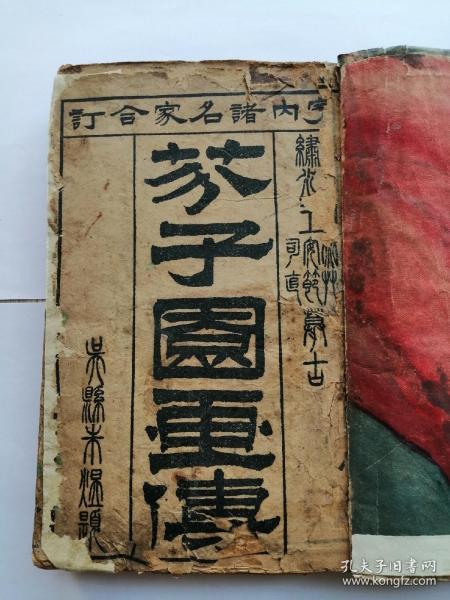 宇內諸名家合訂
繡水王
宓草
安節
司直
摹古
芥子園畫傳
吳縣朱題
孔夫子旧书网
www.kongfz.com